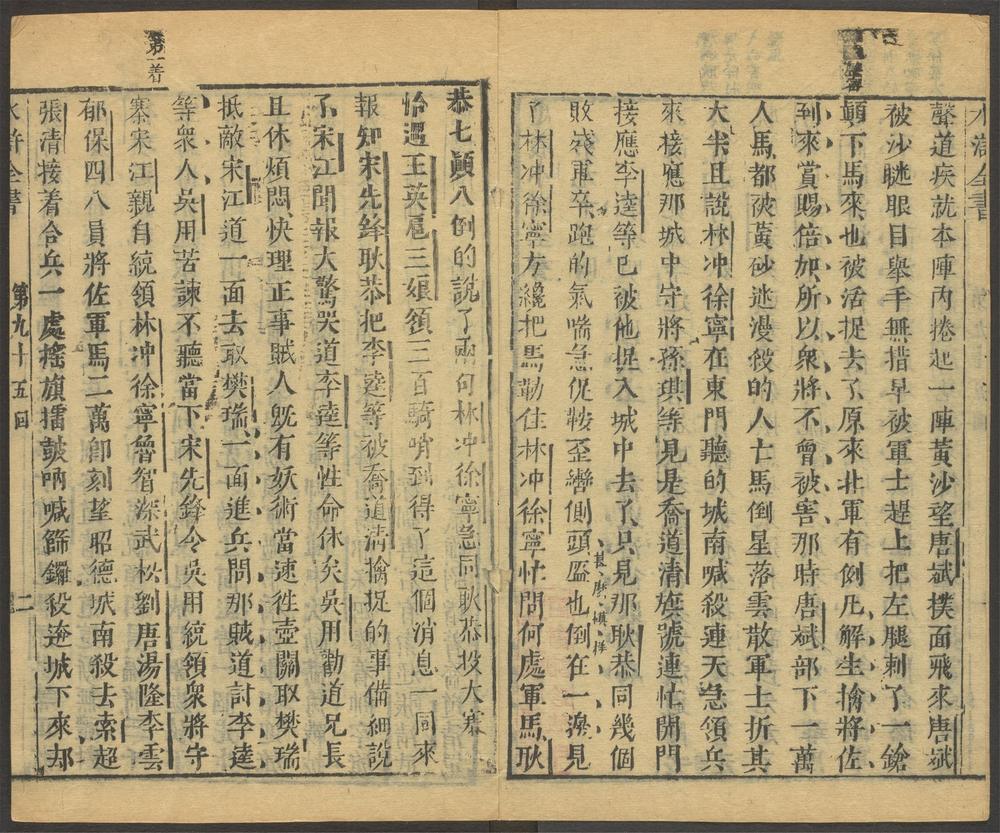 水滸全書
聲道疾就本陣內捲起一陣黃沙望唐斌撲面飛來唐斌
被沙瞇眼目舉手無措早被軍士趕上把左腿刺了一鎗
顛下馬來也被活捉去了原來北軍有例凡解生擒將佐
到來賞賜倍加所以眾將不曾被害那時唐斌部下一萬
人馬都被黃砂迷漫殺的人亡馬倒星落雲散軍士折其
大半且說林冲徐寧在東門聽的城南喊殺連天急領兵
來接應那城中守將孫琪等見是喬道清旗號連忙開門
接應李逵等已被他捉入城中去了只見那耿恭同幾個
敗殘軍卒跑的氣喘急促鞍歪轡側頭盔也倒在一邊見
了林冲徐寧方纔把馬勒住林冲徐寧忙問何處軍馬耿
第一着
恭七顛八倒的說了兩句林冲徐寧急同耿恭投大寨
恰遇王英扈三娘領三百騎哨到得了這個消息一同來
報知宋先鋒耿恭把李逵等被喬道清擒捉的事備細說
了宋江聞報大驚哭道李逵等性命休矣吳用勸道兄長
且休煩悶快理正事賊人既有妖術當速往壺關取樊瑞
抵敵宋江道一面去取樊瑞一面進兵問那賊道討李逵
等眾人吳用苦諫不聽當下宋先鋒令吳用統領眾將守
寨宋江親自統領林冲徐寧魯智深武松劉唐湯隆李雲
郁保四八員將佐軍馬二萬卽刻望昭德城南殺去索超
張清接着合兵一處搖旗擂鼓吶喊篩鑼殺逩城下來却
水滸全書 第九十五回 二